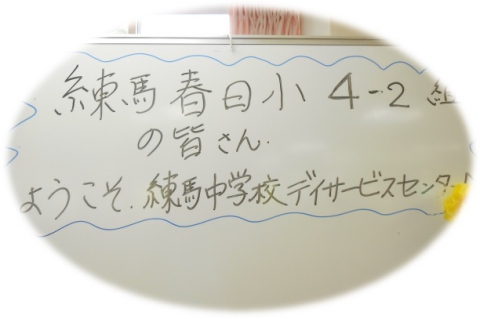 練馬春日小 4-2 組
の皆さん.
ようこそ.練馬中学校デイサービスセンター